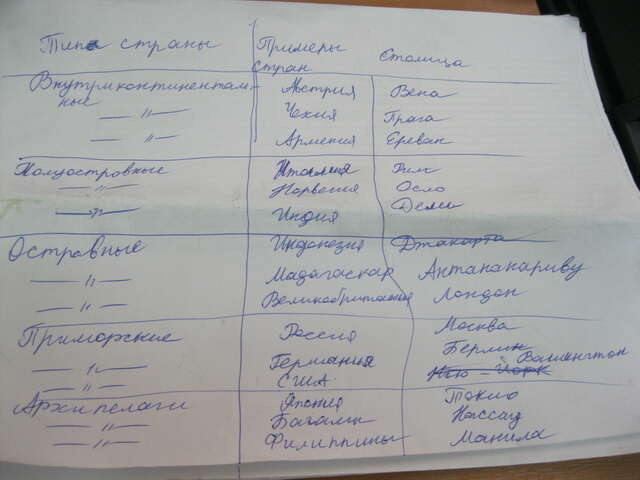 Типа страны Примеры стран Столица
Внутриконтиненталь- Австрия Вена
ные
—〃— Чехия Прага
—〃— Армения Ереван
Полуостровные Италия Рим
—〃— Норвегия Осло
—〃— Индия Дели
Островные Индонезия Джакарта
—〃— Мадагаскар Антананариву
—〃— Великобритания Лондон
Приморские Россия Москва
—〃— Германия Берлин
—〃— США Нью-Йорк Вашингтон
Архипелаги Япония Токио
—〃— Багамы Нассау
—〃— Филиппины Манила